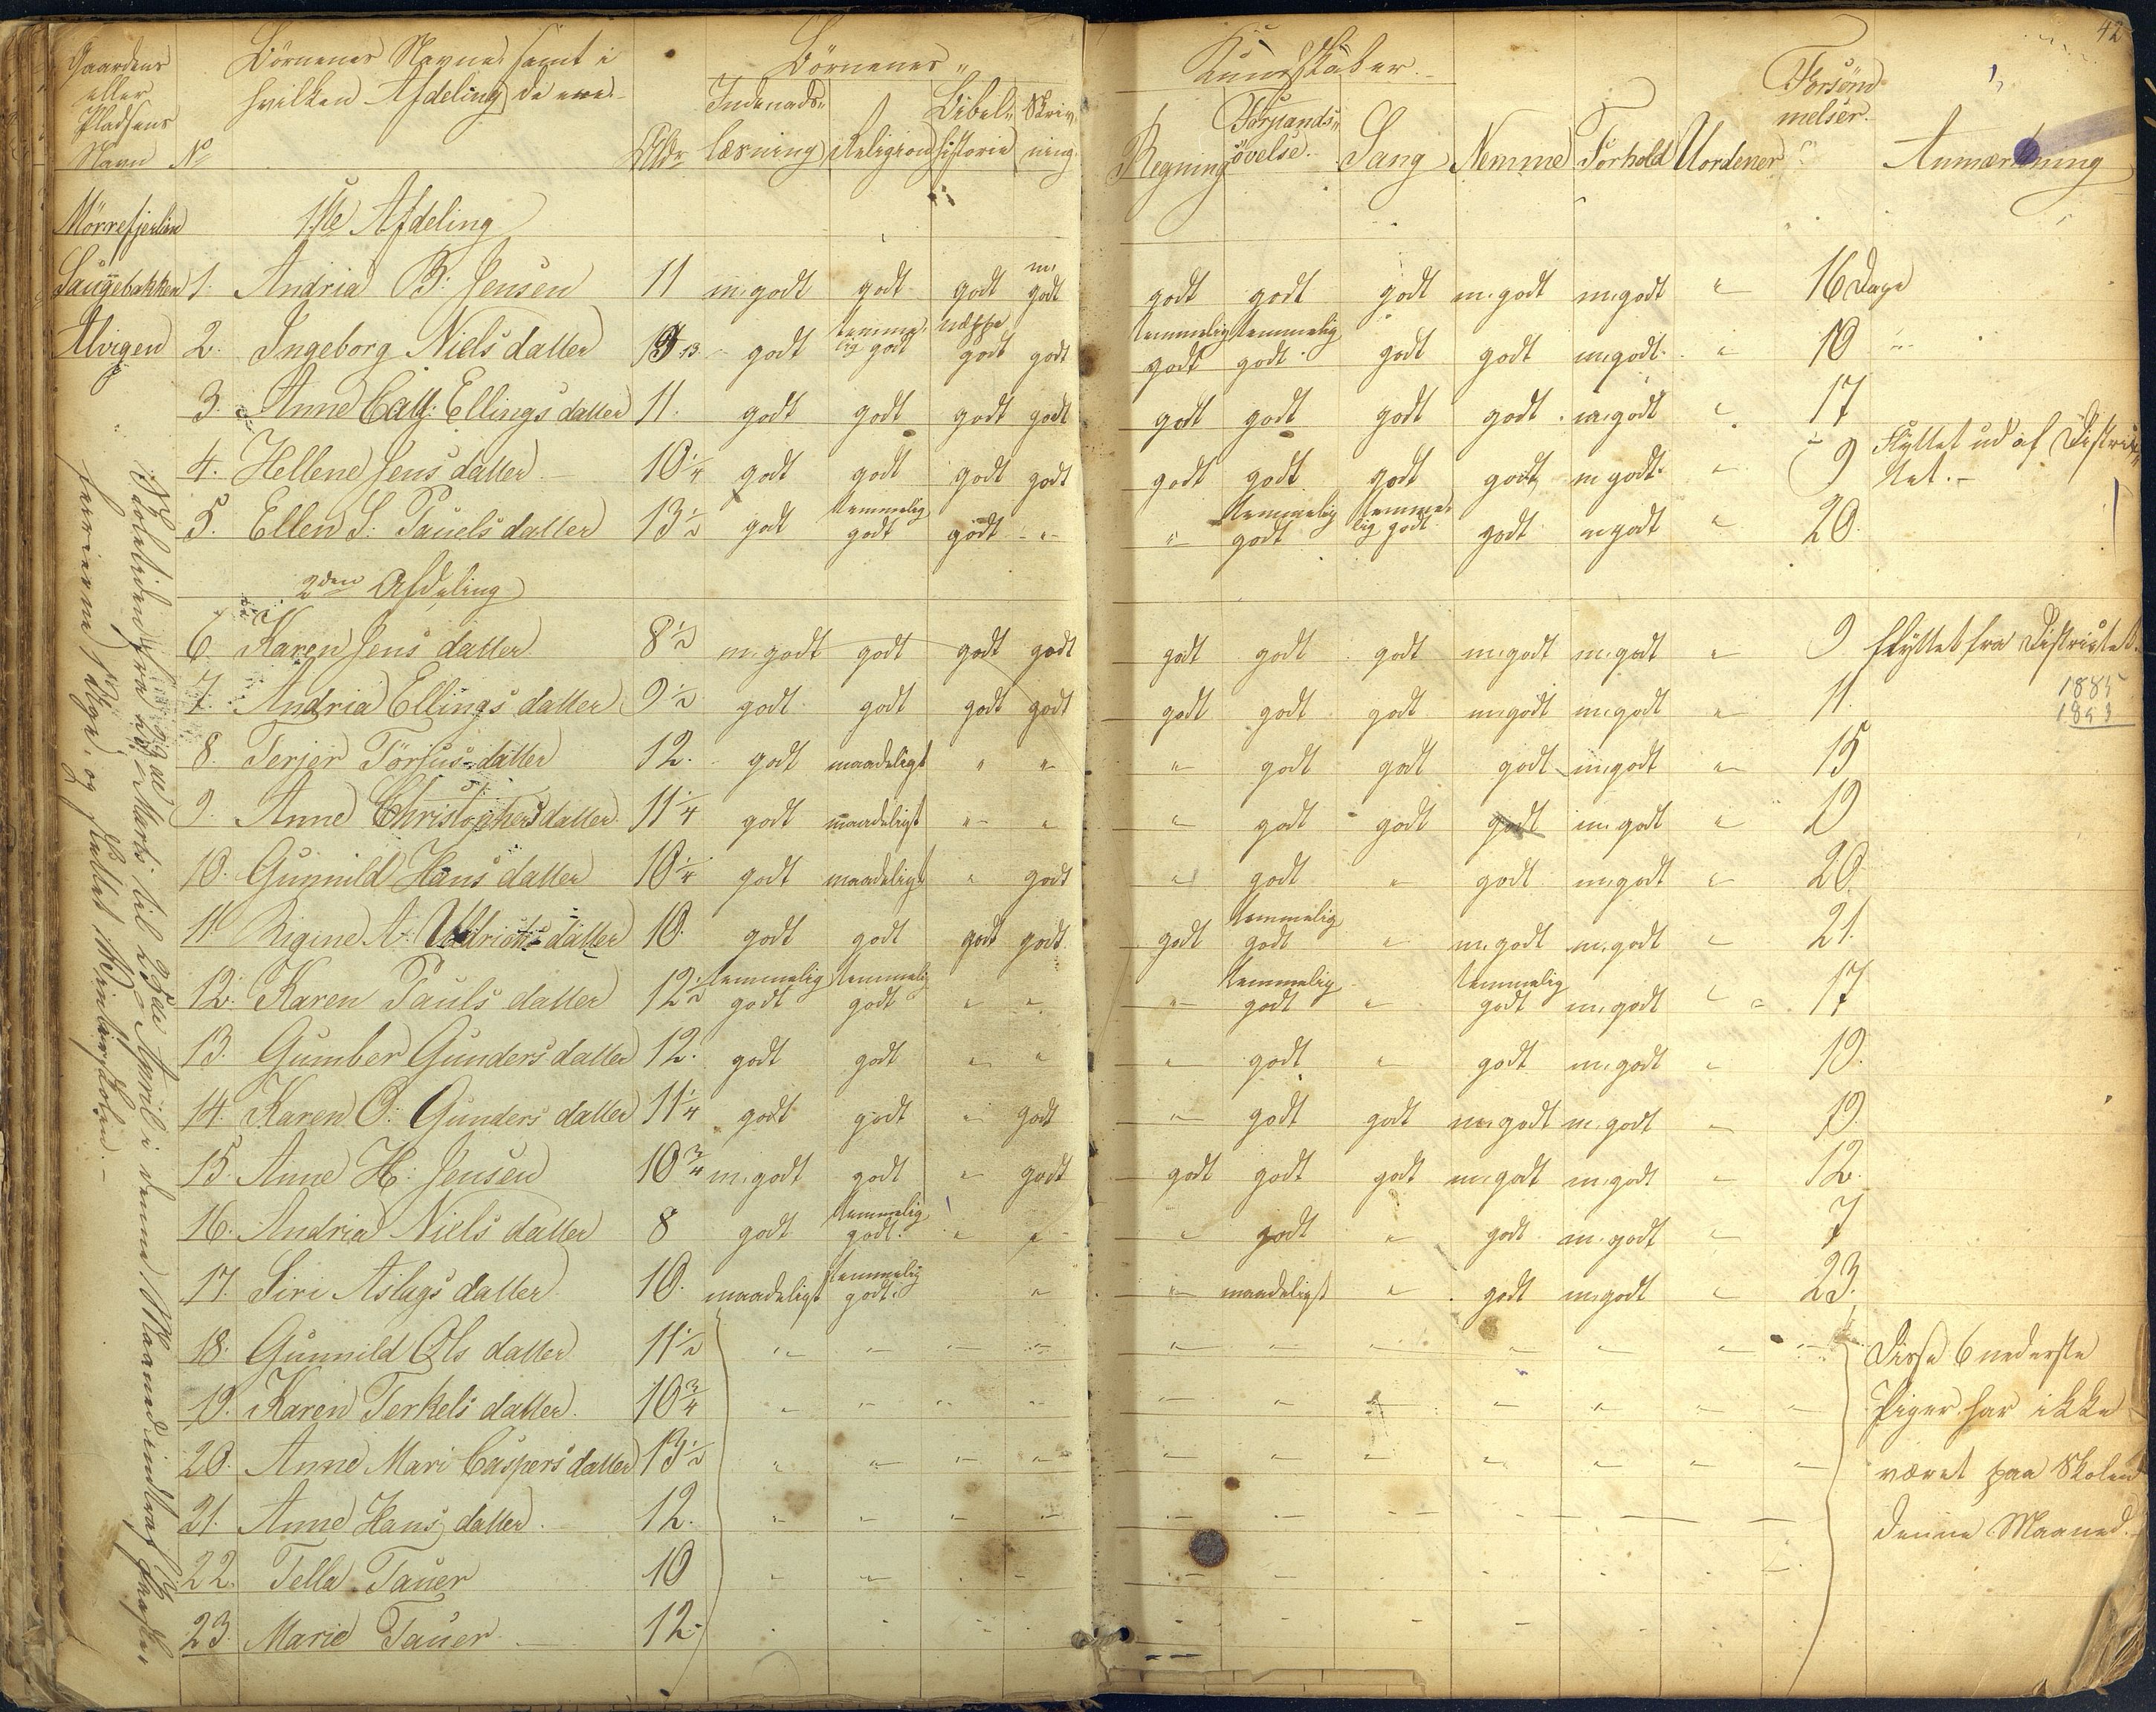 42
Gaardens eller Pladsens Navn No Börnenes Navne samt i hvilken Afdeling de ere. Aldr. Börnenes Kundskaber. Forsömmelser. Anmærkning
Indenads læsning Religion Bibel historie Skriv ning Regning Forstands övelse. Sang Nemme Forhold Uordener
Mörrefjerlin 1ste Afdeling
Saugebakken 1. Andria B. Jensen 11 m.godt godt godt m. godt godt godt godt m.godt m.godt " 16 Dage
Alvigen 2. Ingeborg Niels datter 13 godt temmelig godt næppe godt godt temmelig godt temmelig godt godt godt m.godt " 10 "
3. Anne Cath: Ellings datter 11. godt godt godt godt godt godt godt godt m.godt " 17
4. Hellene Jens datter 10 1/4 godt godt godt godt godt godt godt godt m godt " 9 Flyttet ud af Distriktet.
5. Ellen S. Pauels datter 13 1/2 godt temmelig godt godt " " temmelig godt temmelig godt godt m godt " 20.
2den Afdeling
6 Karen Jens datter 8 1/2 m.godt godt godt godt godt godt godt m.godt m.godt " 9 flyttet fra Distriktet.
7. Andria Ellings datter 9 1/2 godt godt godt godt godt godt godt m.godt m.godt " 11. 1885
8. Terjer Törjus datter 12. godt maadeligt " " " godt godt godt m.godt " 15
9. Anne Christophers datter 11 1/4 godt maadeligt " " " godt godt godt m.godt " 19
10. Gunnild Hans datter 10 1/4 godt maadeligt " godt " godt " godt m.godt " 20.
11 datter 10. godt godt godt godt godt temmelig godt " m.godt m.godt " 21.
12. Karen Pauls datter 12 1/2 temmelig godt temmelig godt " " " temmelig godt " temmelig godt m.godt " 17
13. Gumber Gunders datter 12. godt godt " " " godt " godt m.godt " 19.
14. Karen O. Gunders datter 11 1/4 godt godt " godt " godt godt m.godt m.godt " 19.
15. Anne H. Jensen 10 3/4 m.godt godt " godt godt godt godt m.godt m.godt " 12.
16. Andria Niels datter 8 godt temmelig godt. " " " godt " godt m.godt " 7
17. Siri Aslags datter 10. maadeligt temmelig godt. " " maadeligt " godt m.godt " 23.
18. Gunnild Ols datter 11 1/2 " " " " " " " " " " " Disse 6 nederste
19. Karen Terkels datter. 10 3/4 " " " " " " " " " " " Piger har ikke
20. Anne Mari Caspers datter 13 1/2 " " " " " " " " " " " været paa Skolen
21. Anne Hans datter. 12. " " " " denne Maaned.
22. Tella Tauer 10 " "
23. Marie Tauer 12.
April i denne Maaned indtraf Paaske
ferierne